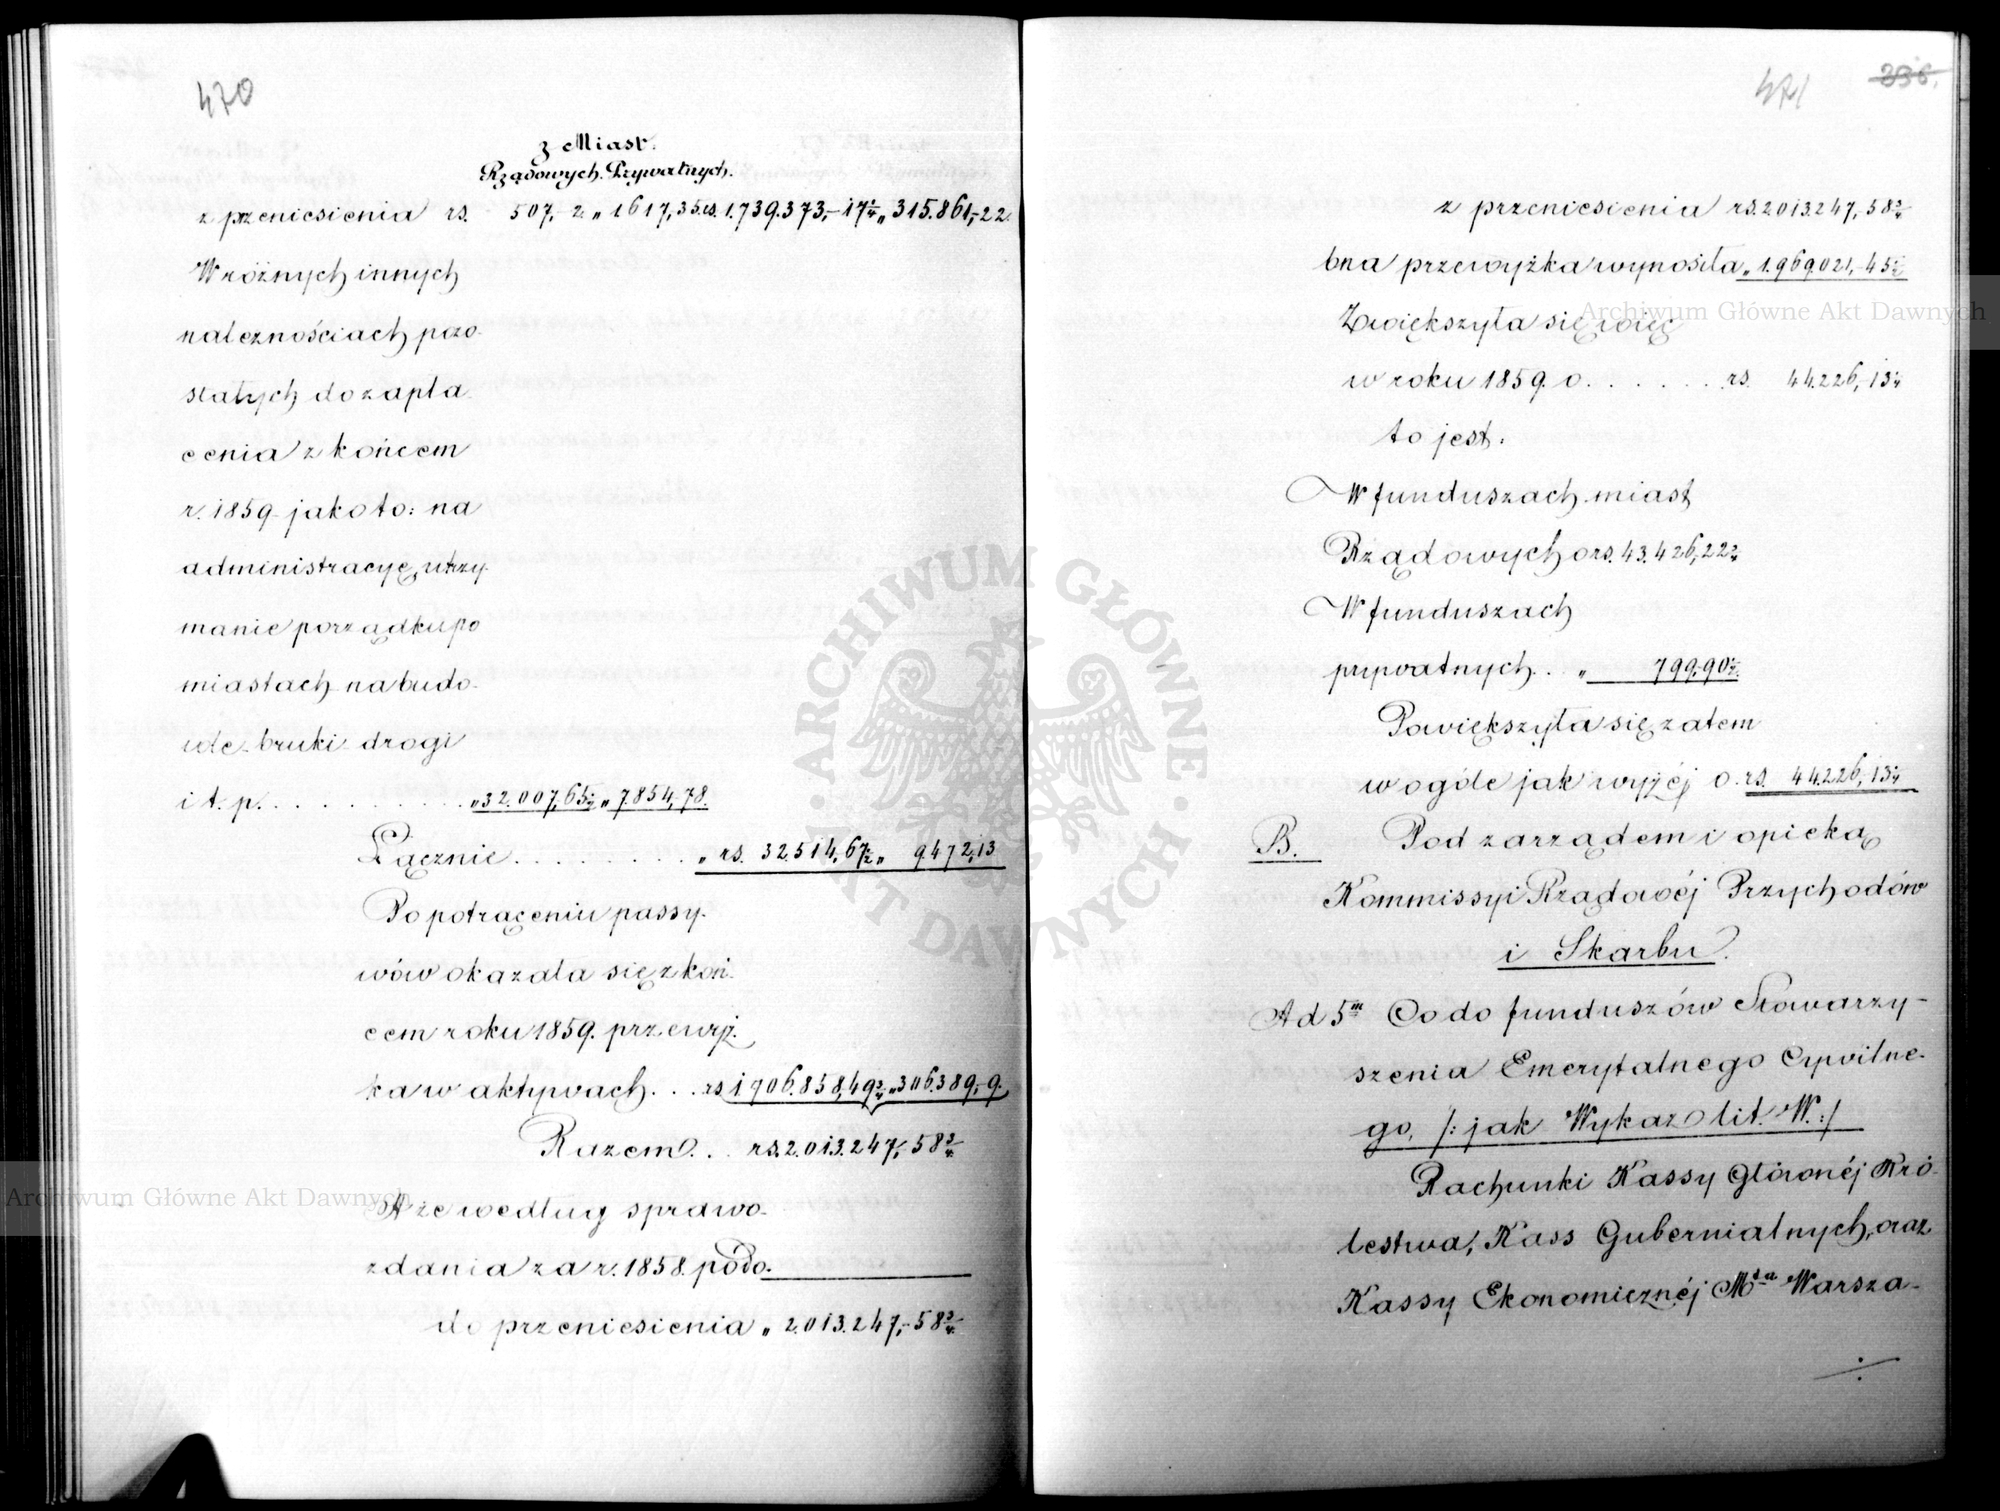 470
z Miast.
Rządowych. Prywatnych.
z przeniesienia rs. 507,- 2 „ 1617,35. rs. 1.739.373,-17¼ „ 315.861,-22.
W różnych innych
należnościach pozo-
stałych do zapła
cenia z końcem
r. 1859 jako to: na
administracyę, utrzy-
manie porządku po
miastach na budo-
wle bruki drogi
i t. p. . . . . . . . . . . „ 32.007,65½ „ 7.854,78.
Łącznie . . . . . . . . „ rs. 32.514,67½ „ 9.472,13
Po potrąceniu passy-
wów okazała się z koń-
cem roku 1859. przewyż-
ka w aktywach . . . rs 1.706.858,49¾ „ 306.389,-9.
Razem . . rs. 2.013.247,-58¾
A że według sprawo-
zdania za r. 1858. podo-
do przeniesienia „ 2.013.247,-58¾
471
236.
z przeniesienia rs. 2.013.247,58¾
bna przewyżka wynosiła „ 1.969.021,-45½
Zwiększyła się więc
w roku 1859. o . . . . . . rs. 44.226,-13¼
to jest:
W funduszach miast
Rządowych o rs. 43.426,22¾
W funduszach
prywatnych . . „ 799,-90½
Powiększyła się zatem
w ogóle jak wyżéj o . rs. 44.226,-13¼
B. Pod zarządem i opieką
Kommissyi Rządowéj Przychodów
i Skarbu.
Ad 5m Co do funduszów Stowarzy-
szenia Emerytalnego Cywilne-
go, /: jak Wykaz lit. W. :/
Rachunki Kassy Głównéj Kró-
lestwa, Kass Gubernialnych, oraz
Kassy Ekonomicznéj Msta Warsza-
÷
Archiwum Główne Akt Dawnych
Archiwum Główne Akt Dawnych
ARCHIWUM GŁÓWNE AKT DAWNYCH